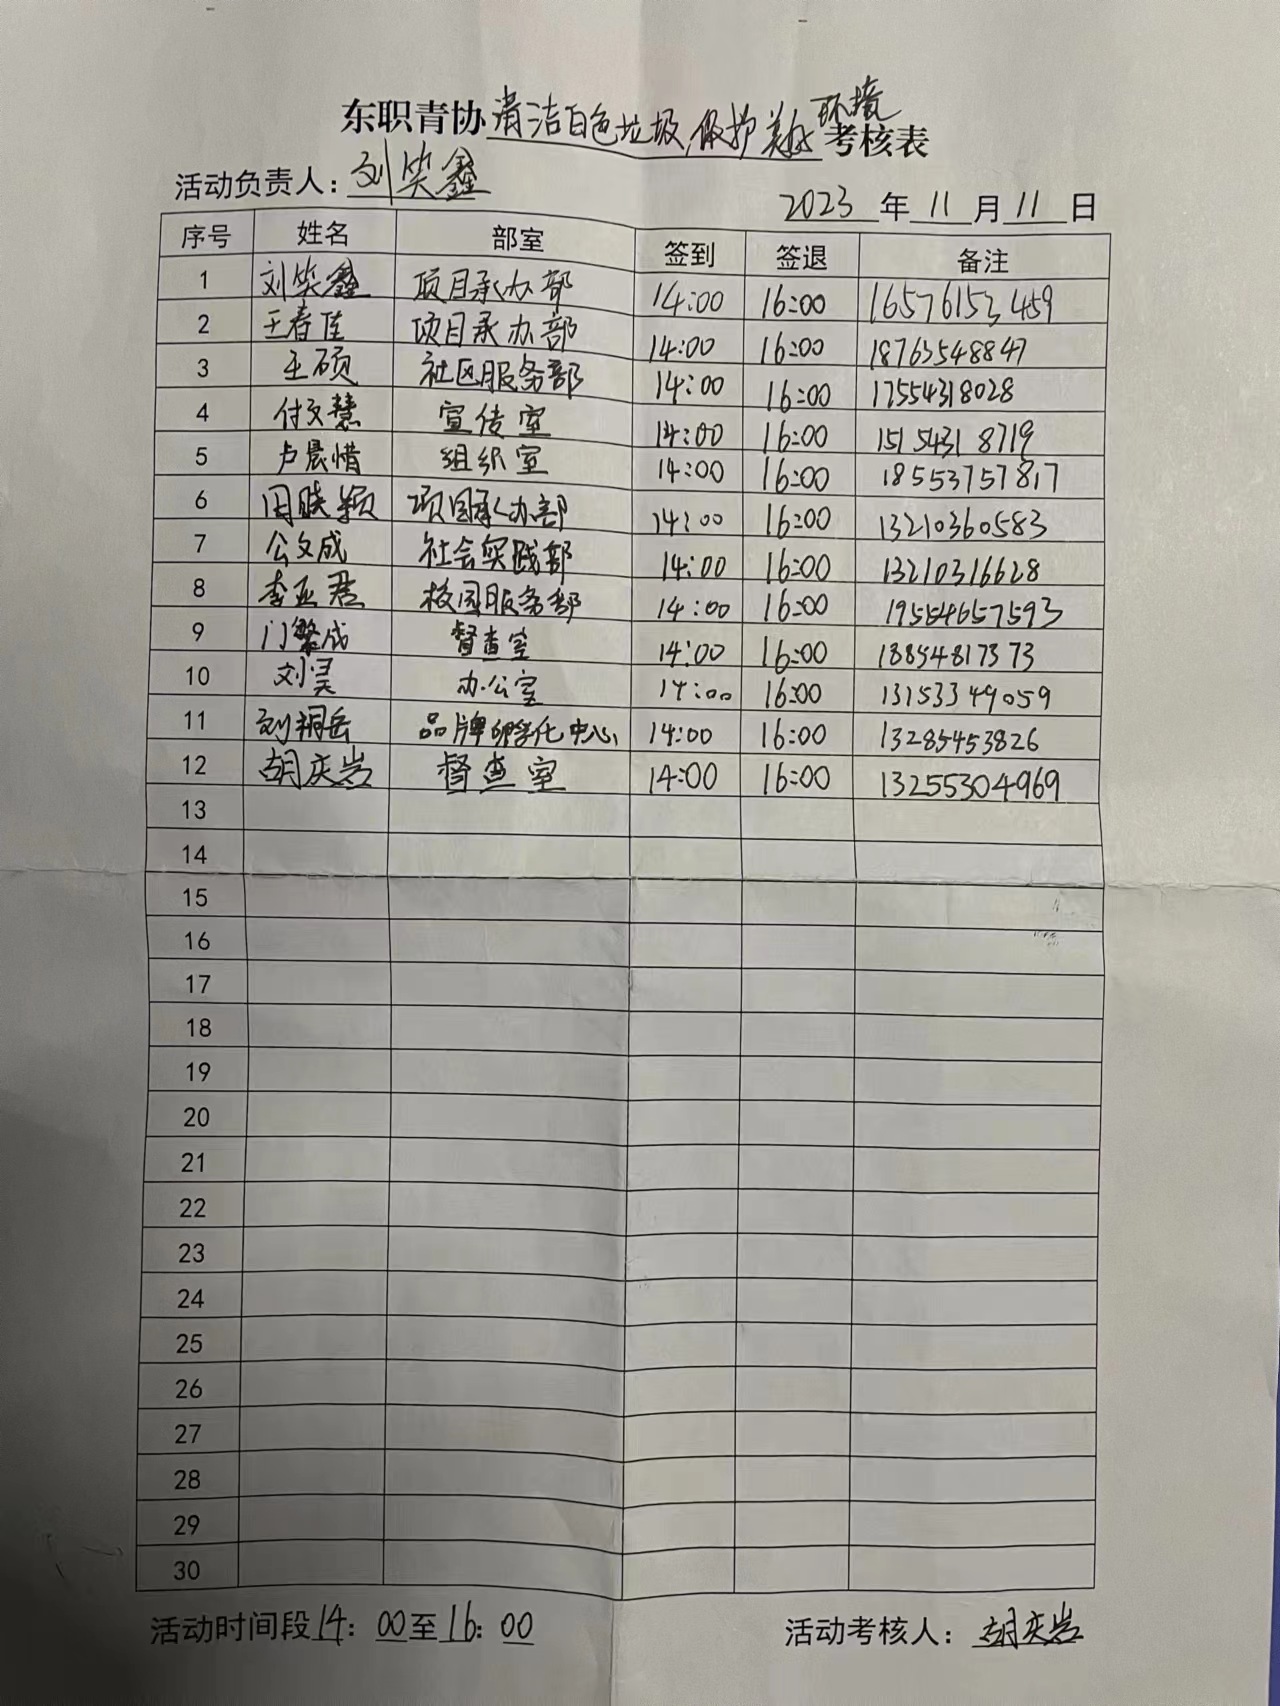 东职青协清洁白色垃圾,保护美好环境考核表
活动负责人：刘笑鑫
2023年11月11日
序号 姓名 部室 签到 签退 备注
1 刘笑鑫 项目承办部 14:00 16:00 16576153459
2 王春佳 项目承办部 14:00 16:00 18763548847
3 王硕 社区服务部 14:00 16:00 17554318028
4 付文慧 宣传室 14:00 16:00 15154318719
5 卢晨惜 组织室 14:00 16:00 18553757817
6 项目承办部 14:00 16:00 13210360583
7 公文成 社会实践部 14:00 16:00 13210316628
8 李亚君 校园服务部 14:00 16:00 19554657593
9 门繁成 督查室 14:00 16:00 18854817373
10 刘昊 办公室 14:00 16:00 13153349059
11 刘桐岳 品牌孵化中心 14:00 16:00 13285453826
12 胡庆岩 督查室 14:00 16:00 13255304969
13
14
15
16
17
18
19
20
21
22
23
24
25
26
27
28
29
30
活动时间段14：00至16：00 活动考核人：胡庆岩